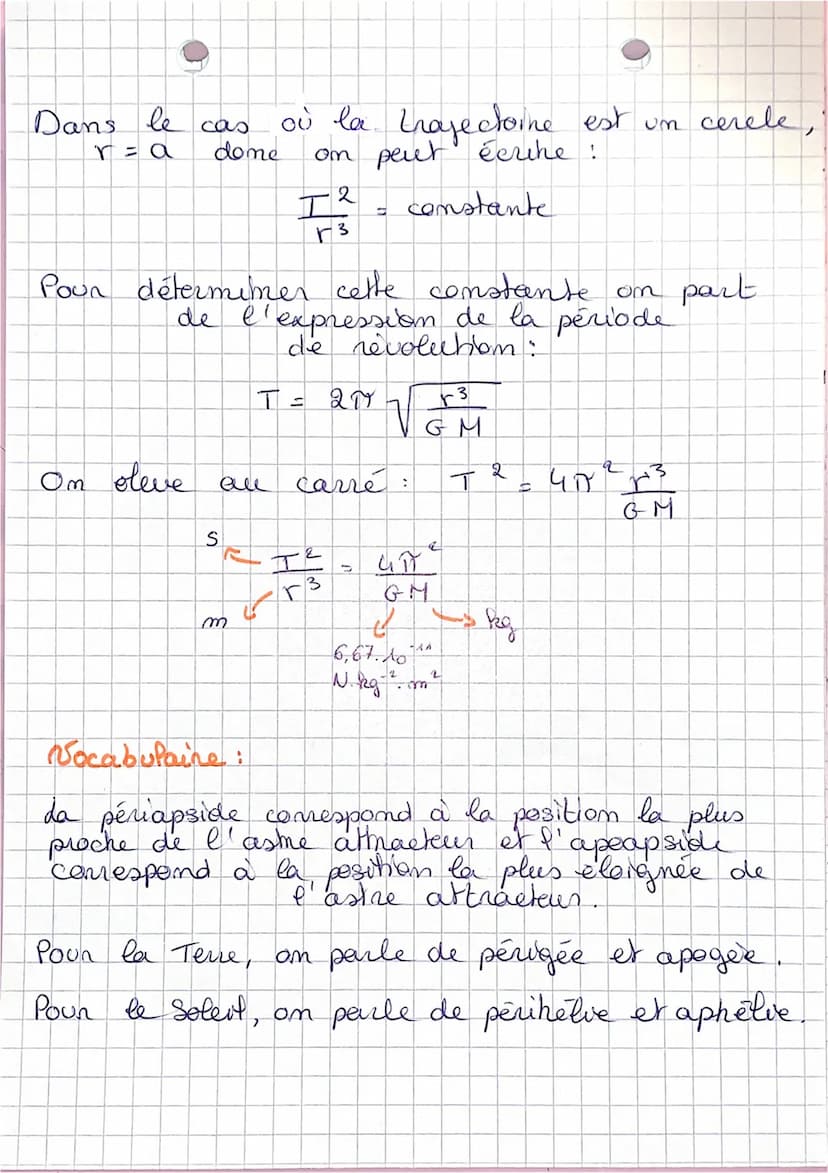 Dans le cas où la trajectoire est un cercle,
r = a donc on peut écrire :
T² / r³ = constante
Pour déterminer cette constante on part
de l'expression de la période
de révolution :
T = 2π √(r³ / GM)
On eleve au carré : T² = 4π² r³ / GM
s
T² / r³ = 4π² / GM
m kg
6,67.10⁻¹¹
N.kg⁻².m²
Vocabulaire :
La périapside correspond à la position la plus
proche de l'astre attracteur et l'apoapside
correspond à la position la plus éloignée de
l'astre attracteur.
Pour la Terre, on parle de périgée et apogée.
Pour le Soleil, on parle de périhélie et aphélie.